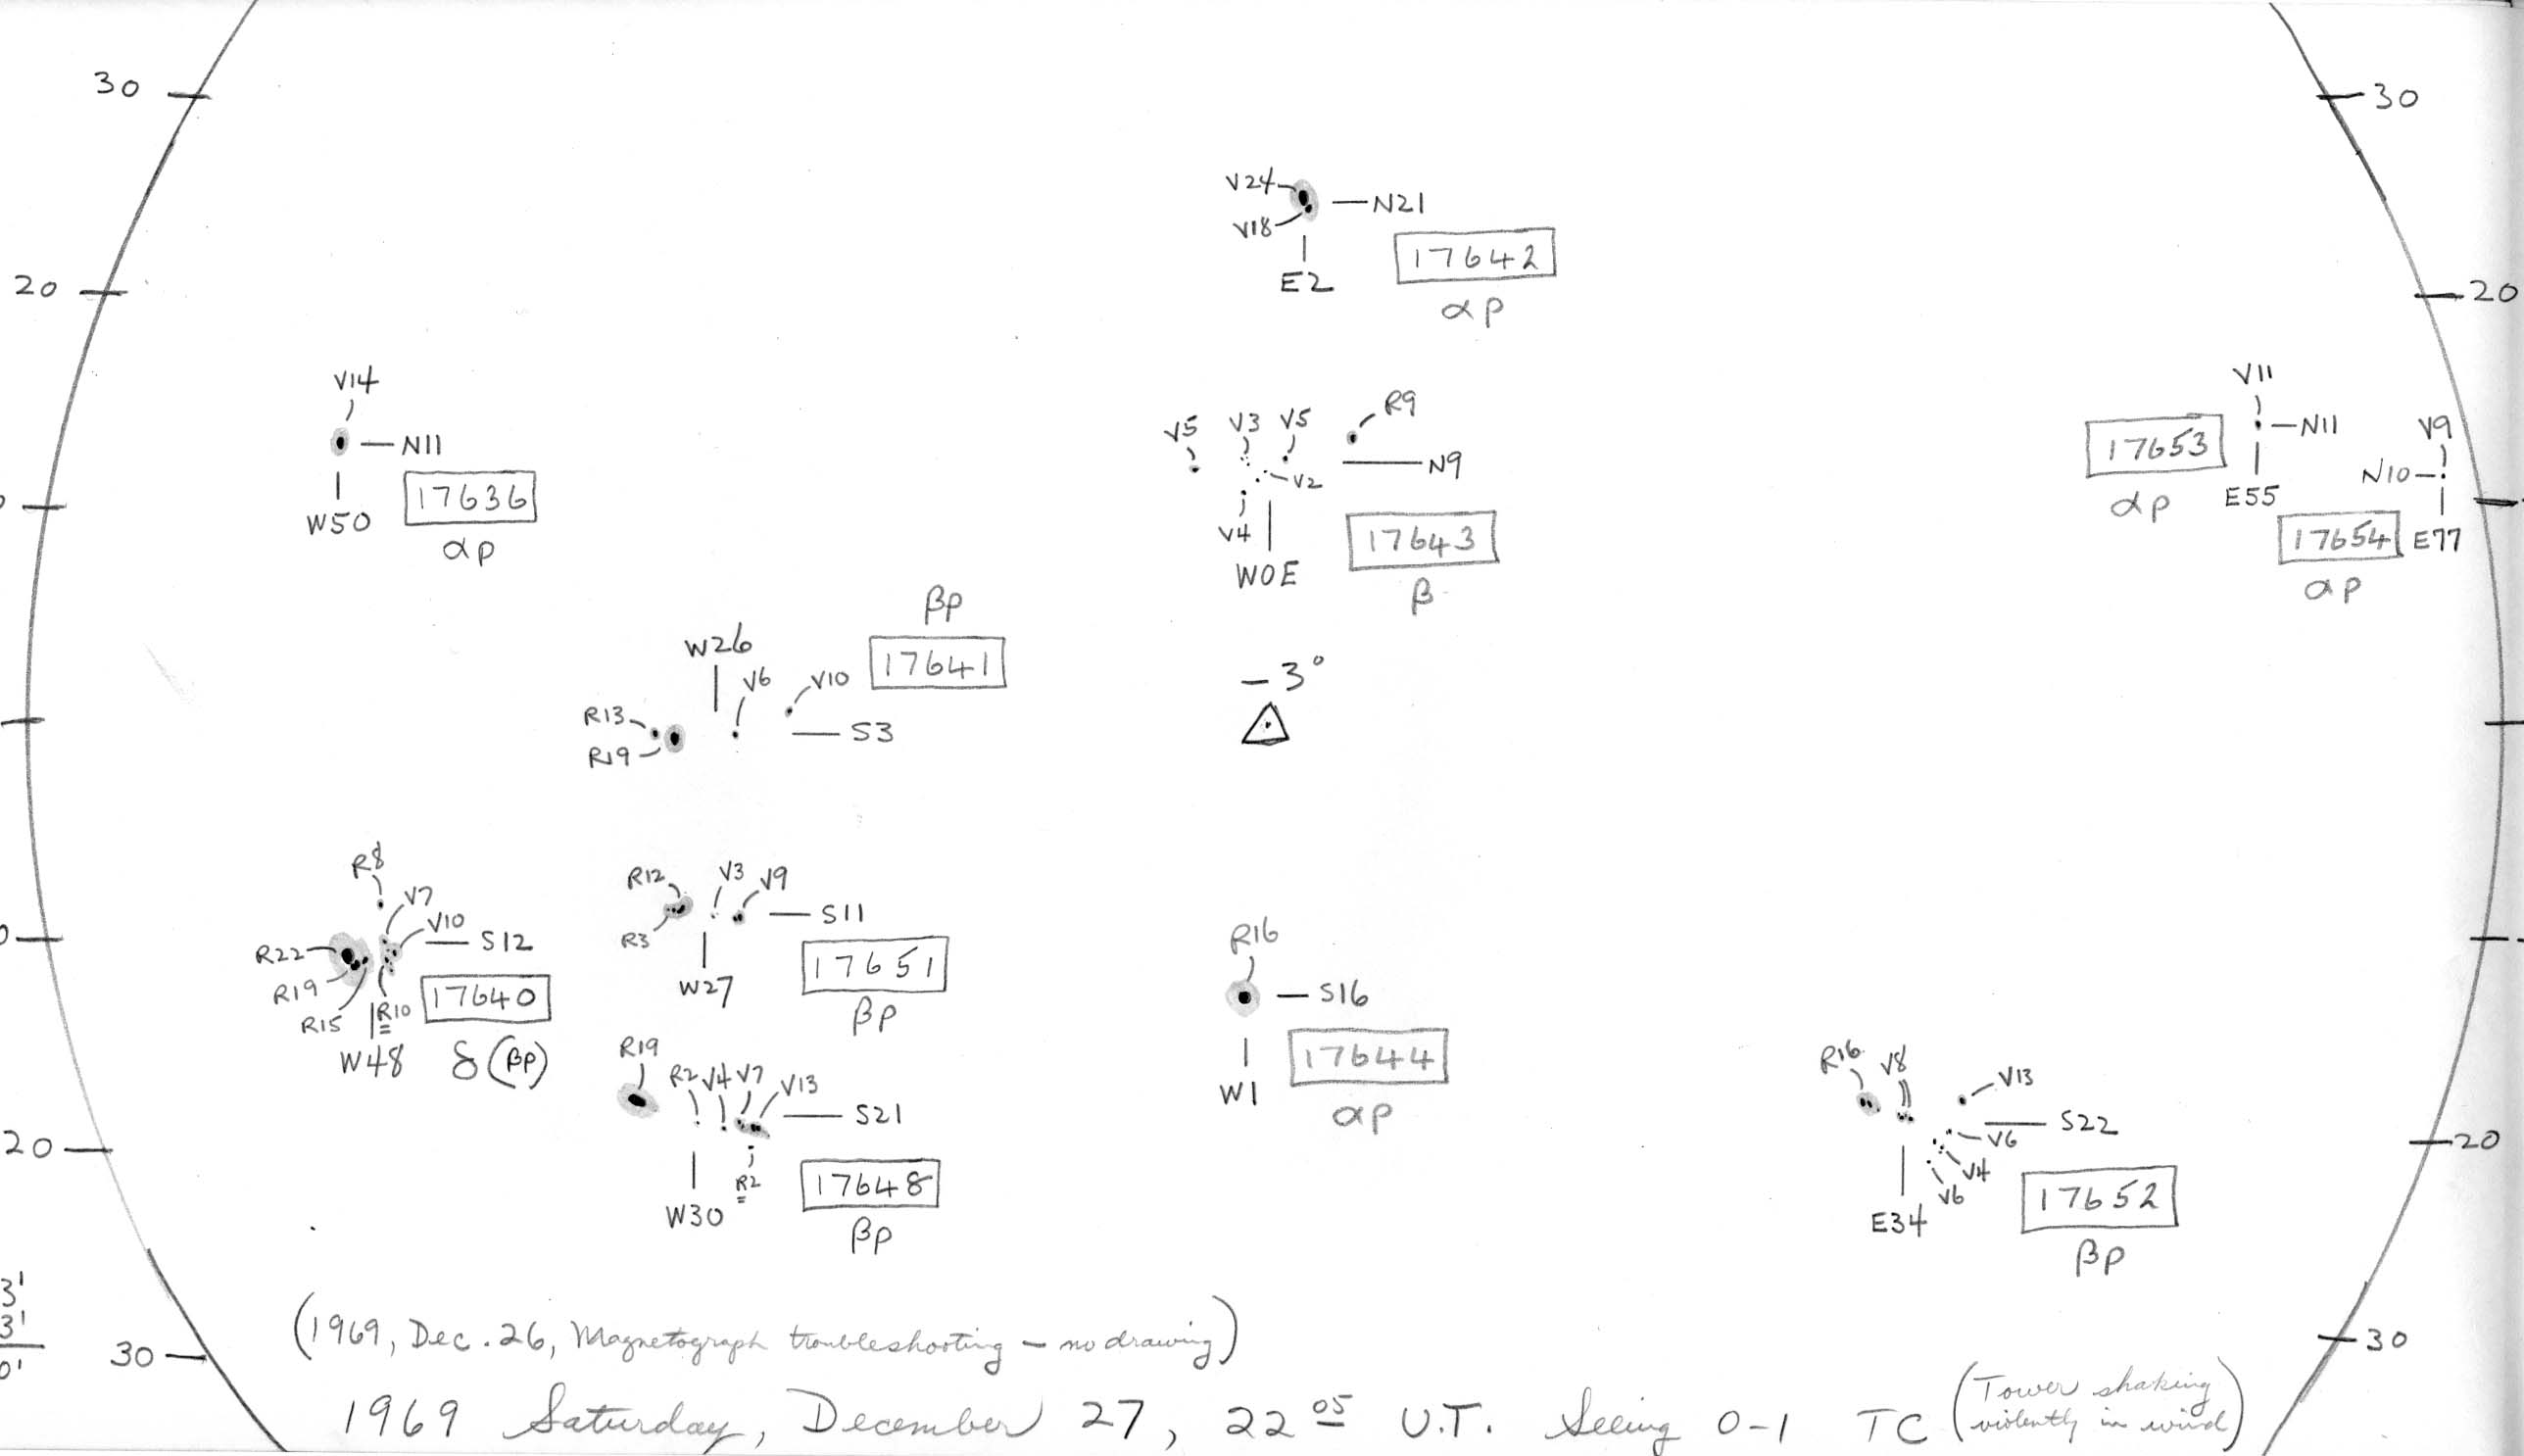 30
30
V24
N21
V18
17642
E2
αp
20
20
V14
N11
W50
17636
αp
V5
V3
V5
R9
N9
V2
V4
W0E
17643
β
V11
17653
N11
αp
E55
V9
N10
17654
E77
αp
βp
W26
17641
V6
V10
R13
R19
S3
-3°
R8
V7
V10
R22
S12
R19
R15
R10
17640
W48
δ(βp)
R12
V3
V9
R3
S11
W27
17651
βp
R16
S16
W1
17644
αp
R19
R2
V4
V7
V13
S21
R2
W30
17648
βp
R16
V8
V13
S22
V6
V4
V6
E34
17652
βp
20
20
3'
3'
0'
30
30
(1969, Dec. 26, Magnetograph troubleshooting – no drawing)
1969 Saturday, December 27, 22 05 U.T. Seeing 0-1 TC (Tower shaking
violently in wind)